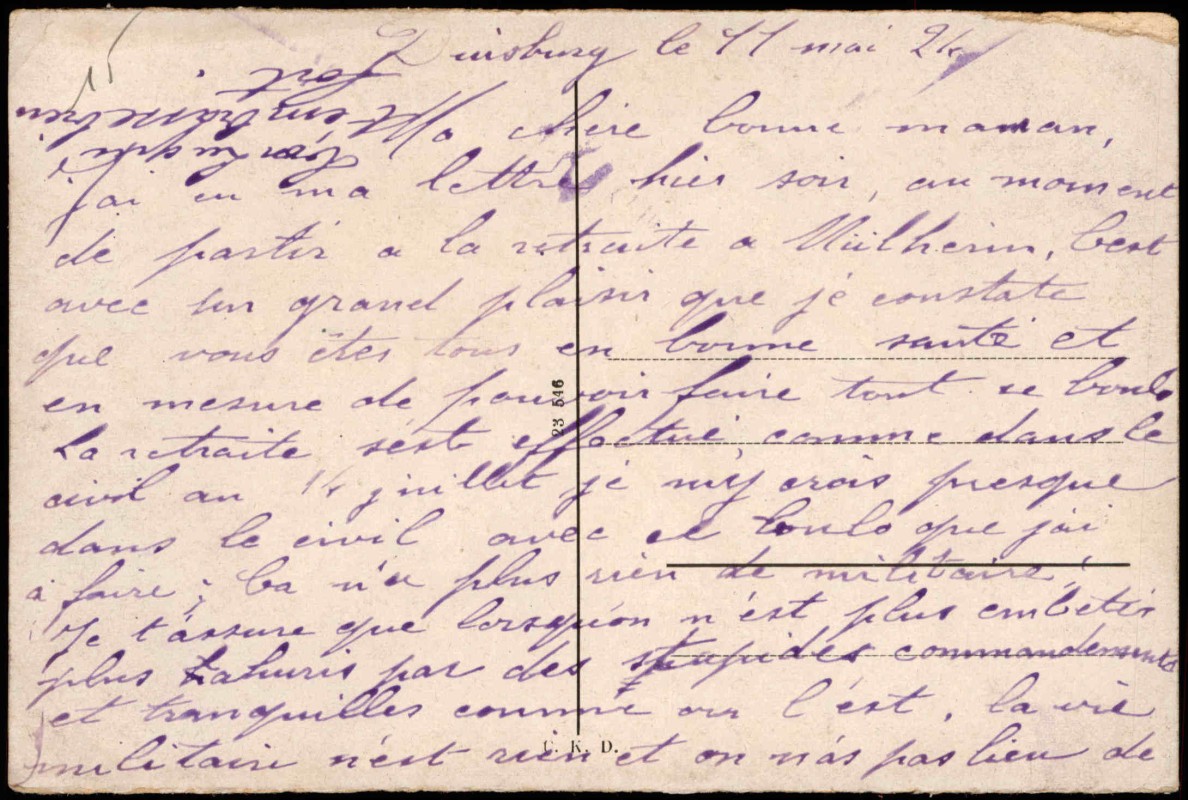 Duisburg le 11 mai 24
Ma chère bonne maman,
j'ai eu ma lettre hier soir, au moment
de partir a la retraite a Mülheim, C'est
avec un grand plaisir que je constate
que vous êtes tous en bonne santé et
en mesure de pouvoir faire tout se boulo
La retraite s'est effectué comme dans le
civil au 14 juillet je m'y crois presque
dans le civil avec ce boulo que j'ai
à faire; Ca n'a plus rien de militaire!
Je t'assure que lorsqu'on n'est plus embêtés
plus ahuris par des stupides commandements
et tranquilles comme on l'est, la vie
militaire n'est rien et on n'as pas lieu de
23 546
C. K. D.